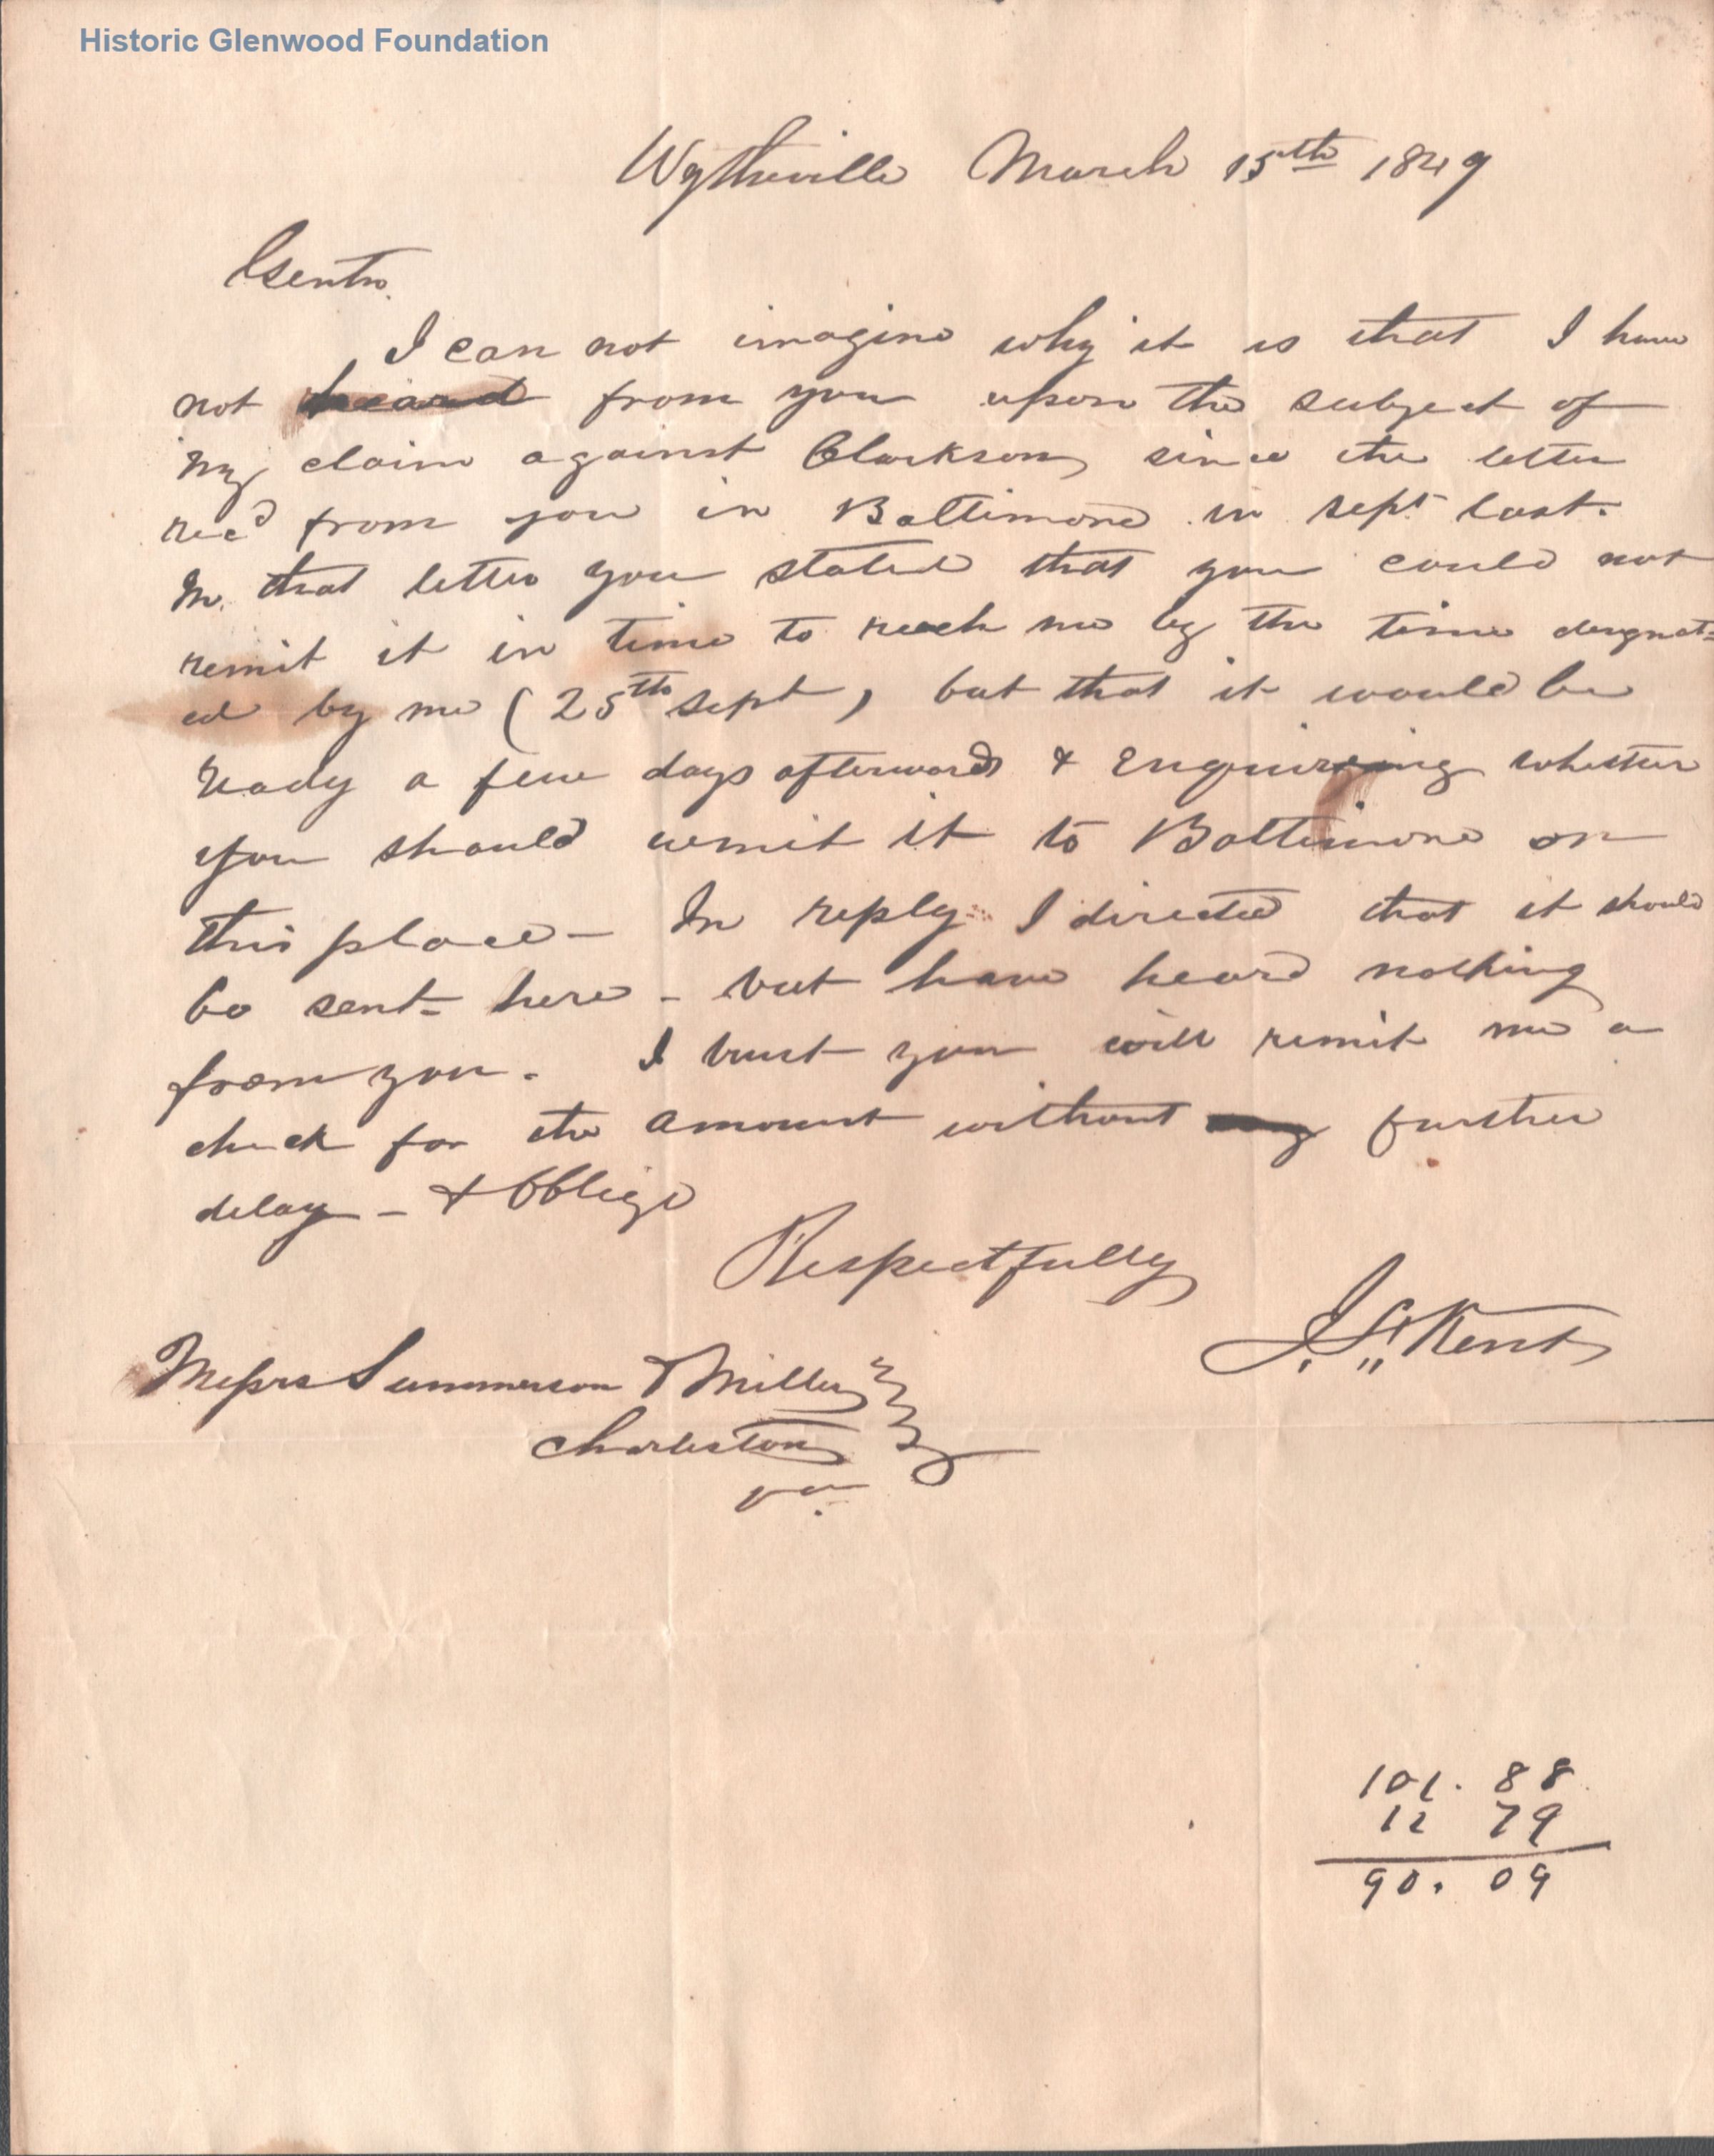 Historic Glenwood Foundation
Wytheville March 15th 1849
Gents.
I can not imagine why it is that I have
not heard from you upon the subject of
my claim against Clarkson, since the letter
recd from you in Baltimore in sept last.
In that letter you stated that you could not
remit it in time to reach me by the time designat=
ed by me (25th sept, but that it would be
ready a few days afterwards & enquireing whether
you should remit it to Baltimore or
this place – In reply I directed that it should
be sent here – but have heard nothing
from you. I trust you will remit me a
check for the amount without further
delay – & Oblige
Respectfully
J. Kent
Messrs Summerson & Miller
Charleston
Va.
101. 88
12 79
90. 09